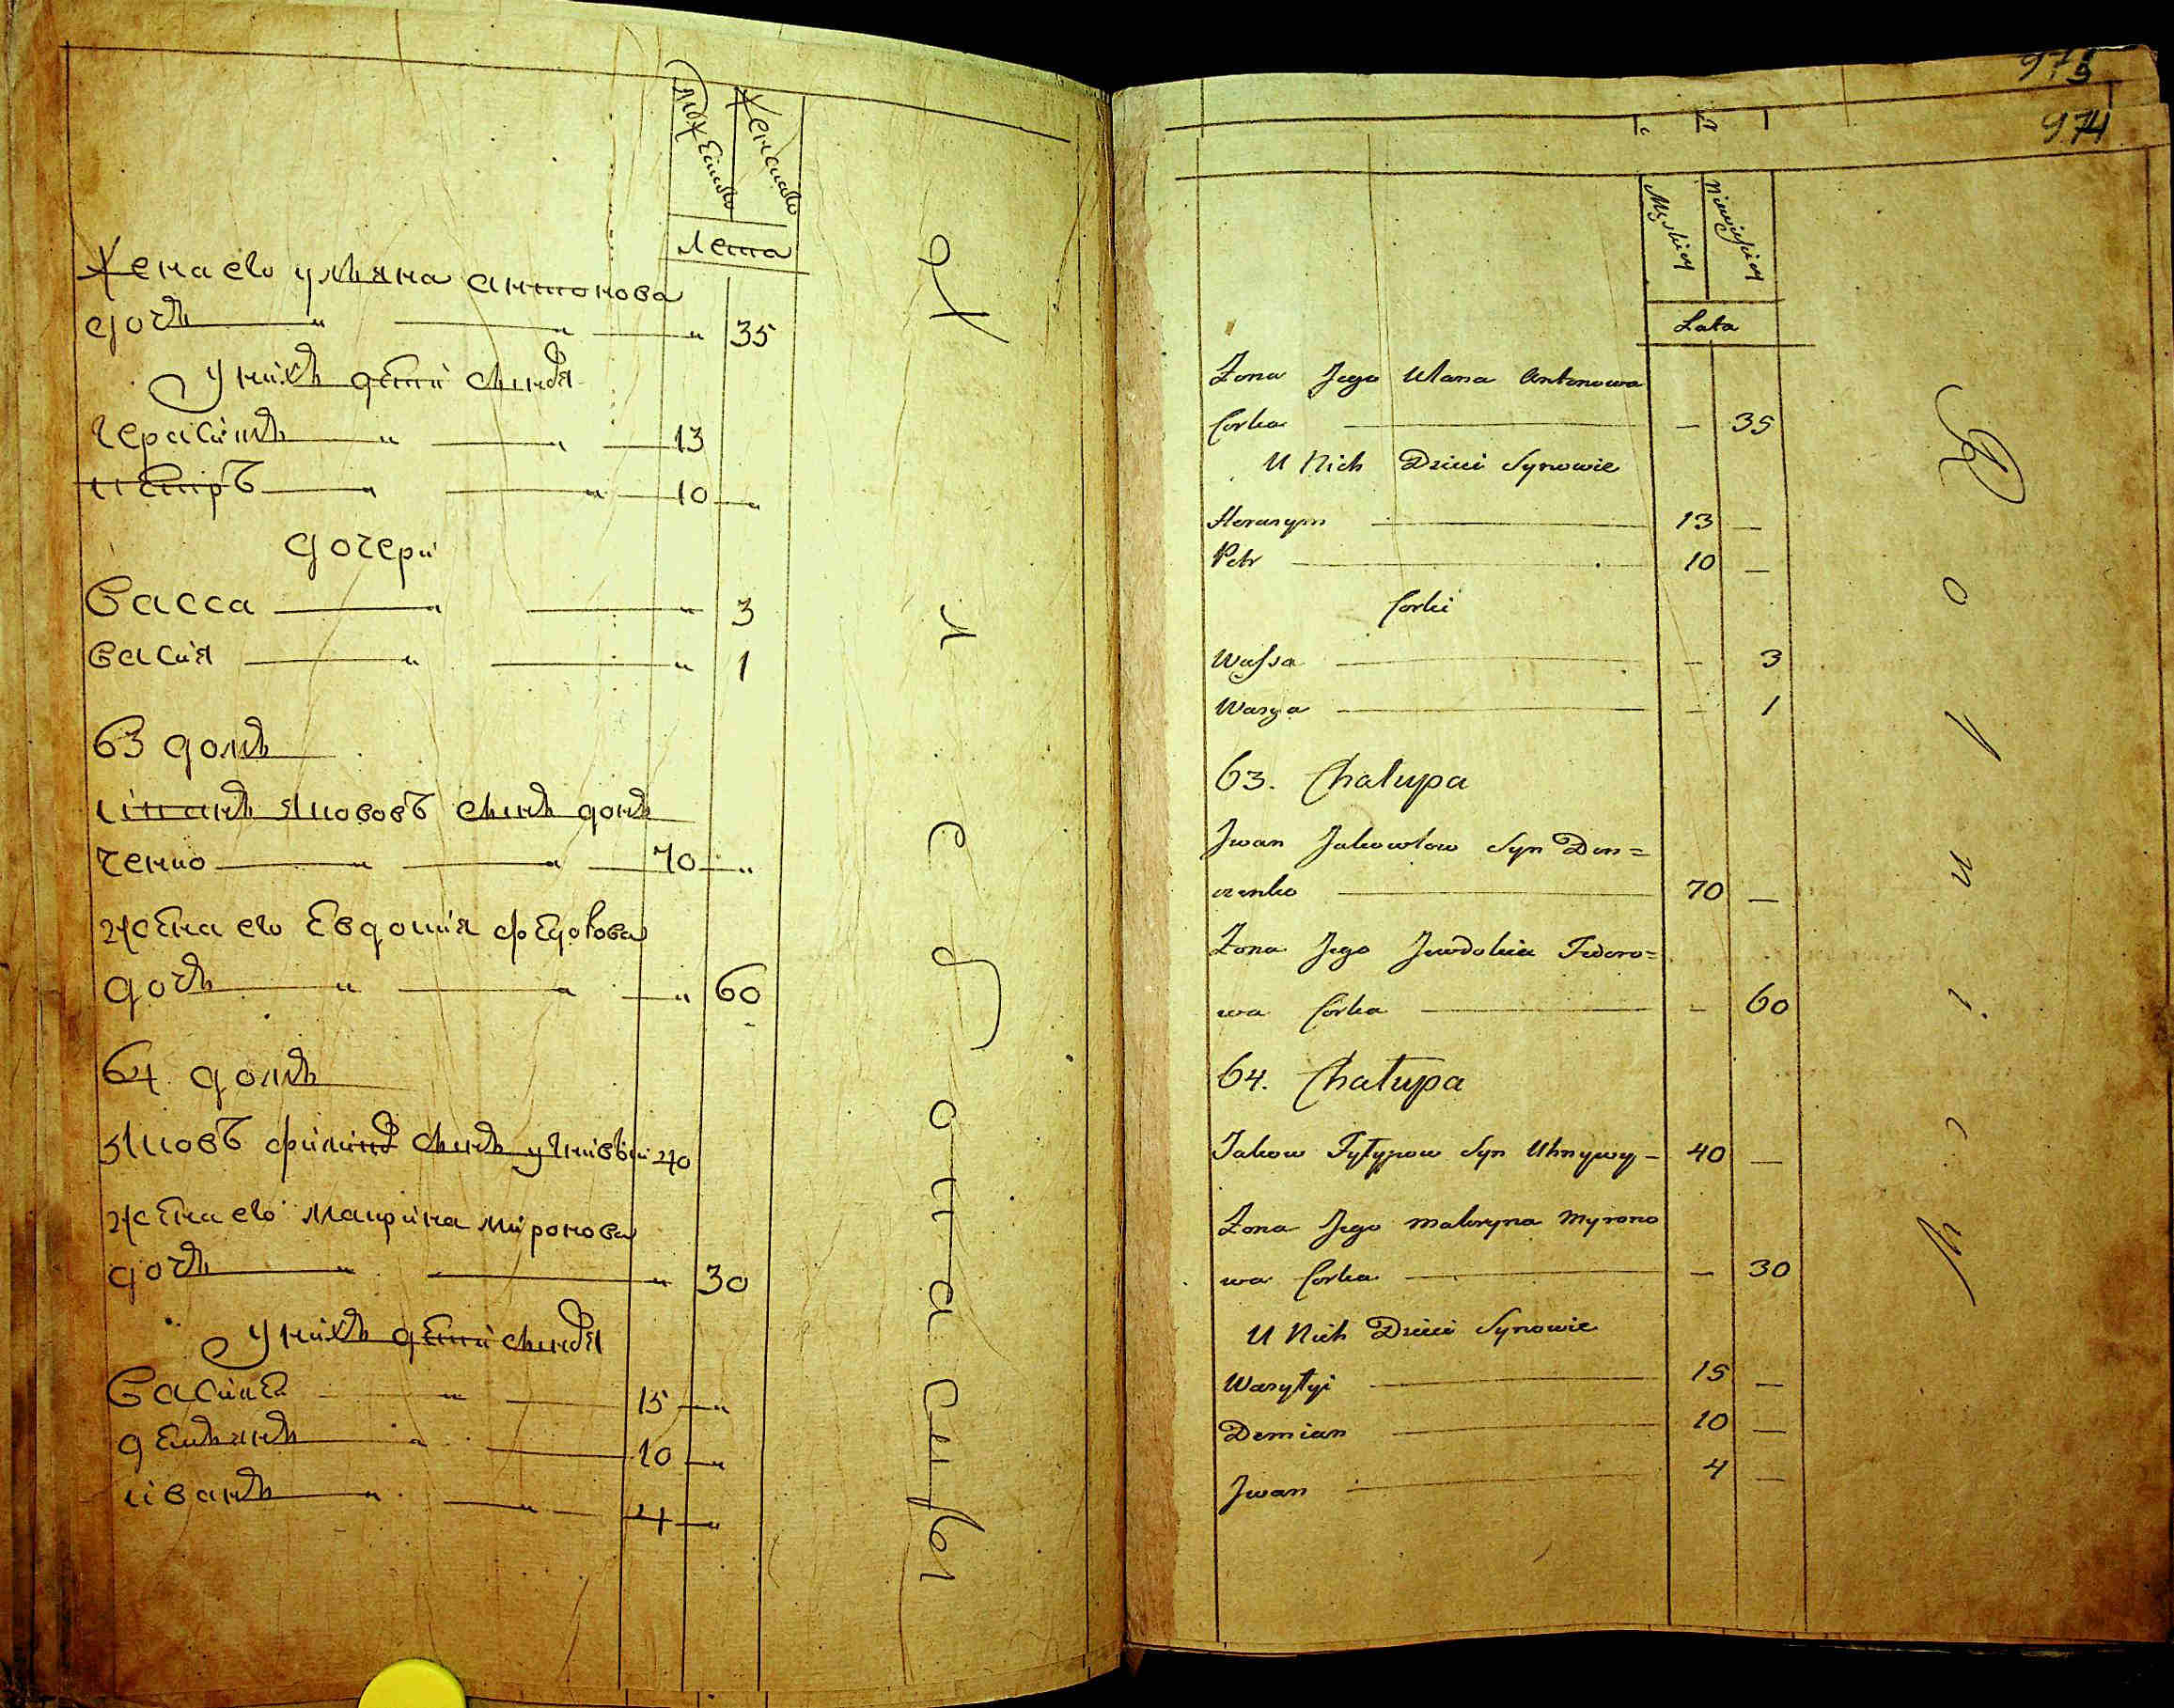 Мужеска
Женска
лета
Жена его ульяна антонова
дочь " " 35
У нихъ дети сыновя
герасимъ " " 13
петръ " " 10 "
дочери
Васса " " 3
васия " " 1
63 домъ
іванъ яковов сынъ дон
ченко " " 70 "
жена его Евдокия федорова
дочь " " " 60
64 домъ
яковъ филипов сынъ угнивый 40
жена его маприна миронова
дочь " " 30
У нихъ дети сыновя
Василе " 15 "
демьянъ " 10 "
иванъ " " 4 "
975
974
Męskiey
Niewieskiey
Lata
Żona Jego Ulana Antonowa
Corka — 35
U Nich Dzieci Synowie
Herasym 13 —
Petr 10 —
Corki
Wassa — 3
Wasya — 1
63. Chałupa
Jwan Jakowlow Syn Don=
czenko 70 —
Żona Jego Jewdokia Fedoro=
wa Corka — 60
64. Chałupa
Jakow Fyłypow Syn Uhnywy — 40 —
Żona Jego Makryna Myrono
wa Corka — 30
U Nich Dzieci Synowie
Wasyłyi 15 —
Demian 10 —
Jwan 4 —